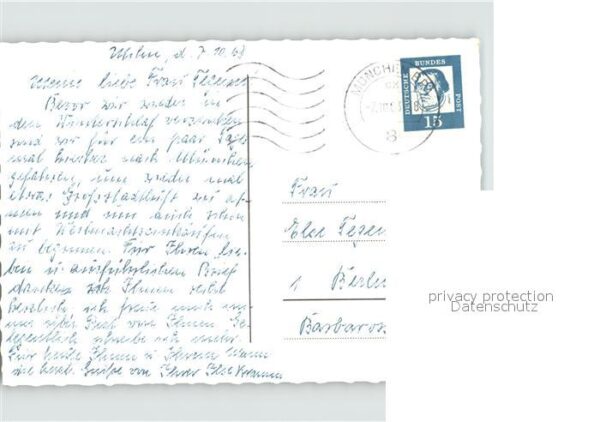 Mchn, d. 7.10.63
Meine liebe Frau Tezener
Bevor wir wieder in
den Winterschlaf versinken
sind wir für ein paar Tage
mal hierher nach München
gefahren, um wieder mal
etwas Großstadtluft zu at-
men und nun auch schon
mit Weihnachtseinkäufen
zu beginnen. Für Ihren lie-
ben u. ausführlichen Brief
danken wir Ihnen recht
herzlich, ich freue mich im-
mer über Post von Ihnen. Ge-
legentlich schreibe ich mehr.
Für heute Ihnen u. Ihrem Mann
die herzl. Grüße von Ihrer Ilse
MÜNCHEN
8
DEUTSCHE BUNDESPOST
15
Frau
Else
1 Berlin
Barbaros
privacy protection
Datenschutz